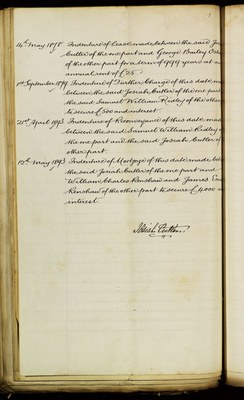 14th May 1878 Indenture of Lease made between the said Jos
Cutler of the one part and George Bailey
of the other part for a term of 999 years at an
annual rent of £25.
1st September 1879 Indenture of Further Charge of this date ma
between the said Josiah Cutler of the one part
the said Samuel William Ridley of the other
to secure £500 and interest.
21st April 1893 Indenture of Reconveyance of this date made
between the said Samuel William Ridley o
the one part and the said Josiah Cutler of
other part.
12th May 1893 Indenture of Mortgage of this date made be
the said Josiah Cutler of the one part and
William Charles Renshaw and James
Renshaw of the other part to secure £4,000 an
interest.
Josiah Cutler